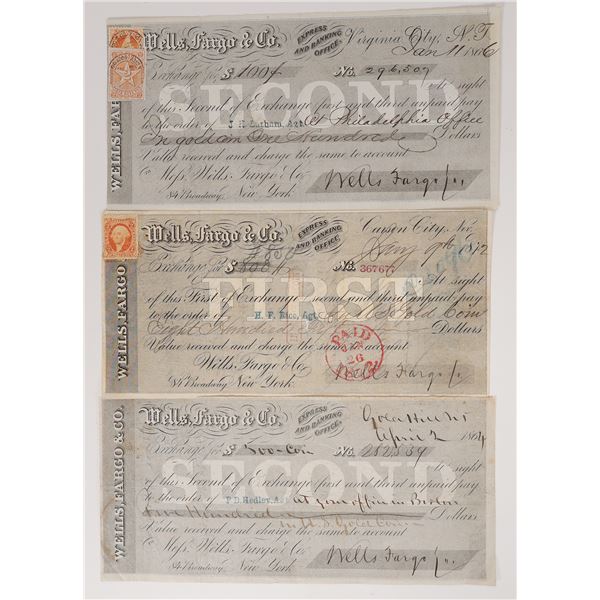 Wells, Fargo & Co. EXPRESS AND BANKING OFFICE. Virginia City, N.T.
Jan 11 186
Exchange for $ 100 No. 296,507
At sight
of this Second of Exchange first and third unpaid pay
to the order of J. H. Latham, Agt. at Philadelphia Office
In gold coin One Hundred Dollars
Value received and charge the same to account
To Mess. Wells Fargo & Co.
84 Broadway, New York Wells Fargo
WELLS, FAR
SECOND
Wells, Fargo & Co. EXPRESS AND BANKING OFFICE. Carson City, Nev.
Jany 9th 1872
Exchange for $ No. 367677
At sight
of this First of Exchange second and third unpaid pay
to the order of H. F. Rice, Agt. Gold Coin
Eight Hundred Dollars
Value received and charge the same to account
Wells Fargo & Co
84 Broadway New York. Wells Fargo
WELLS, FARGO
FIRST
PAID
JAN
26
Wells, Fargo & Co. EXPRESS AND BANKING OFFICE. Gold Hill
April 2 1864
Exchange for $ 500 Coin No. 282539
At sight
of this Second of Exchange first and third unpaid pay
to the order of P. D. Hedley, Agt at your office in Boston
Five Hundred Dollars
in U.S. Gold Coin
Value received and charge the same to account
To Mess. Wells Fargo & Co
84 Broadway, New York Wells Fargo
WELLS, FARGO & CO.
SECOND